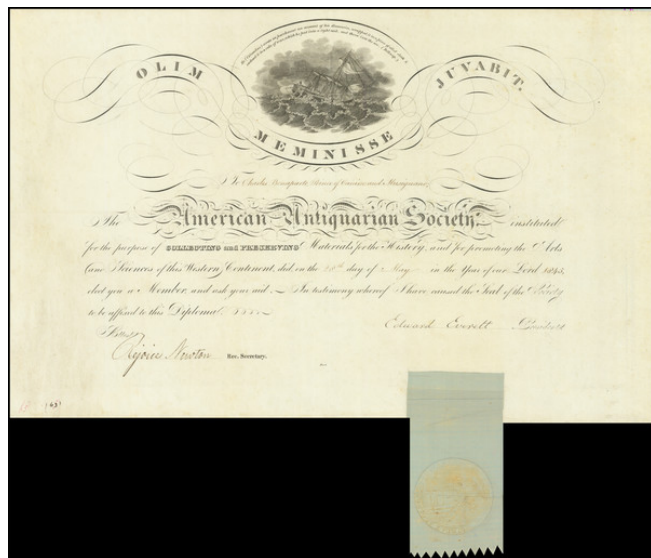 OLIM
JUVABIT.
MEMINISSE
To Charles Bonaparte Prince of Canino and Musignano,
The American Antiquarian Society, instituted
for the purpose of COLLECTING and PRESERVING Materials for the History, and for promoting the Arts
and Sciences of this Western Continent, did, on the 28th day of May in the Year of our Lord 1843,
elect you a Member, and ask your aid. In testimony whereof I have caused the Seal of the Society
to be affixed to this Diploma.
Edward Everett President
Attest,
Rejoice Newton Rec. Secretary.